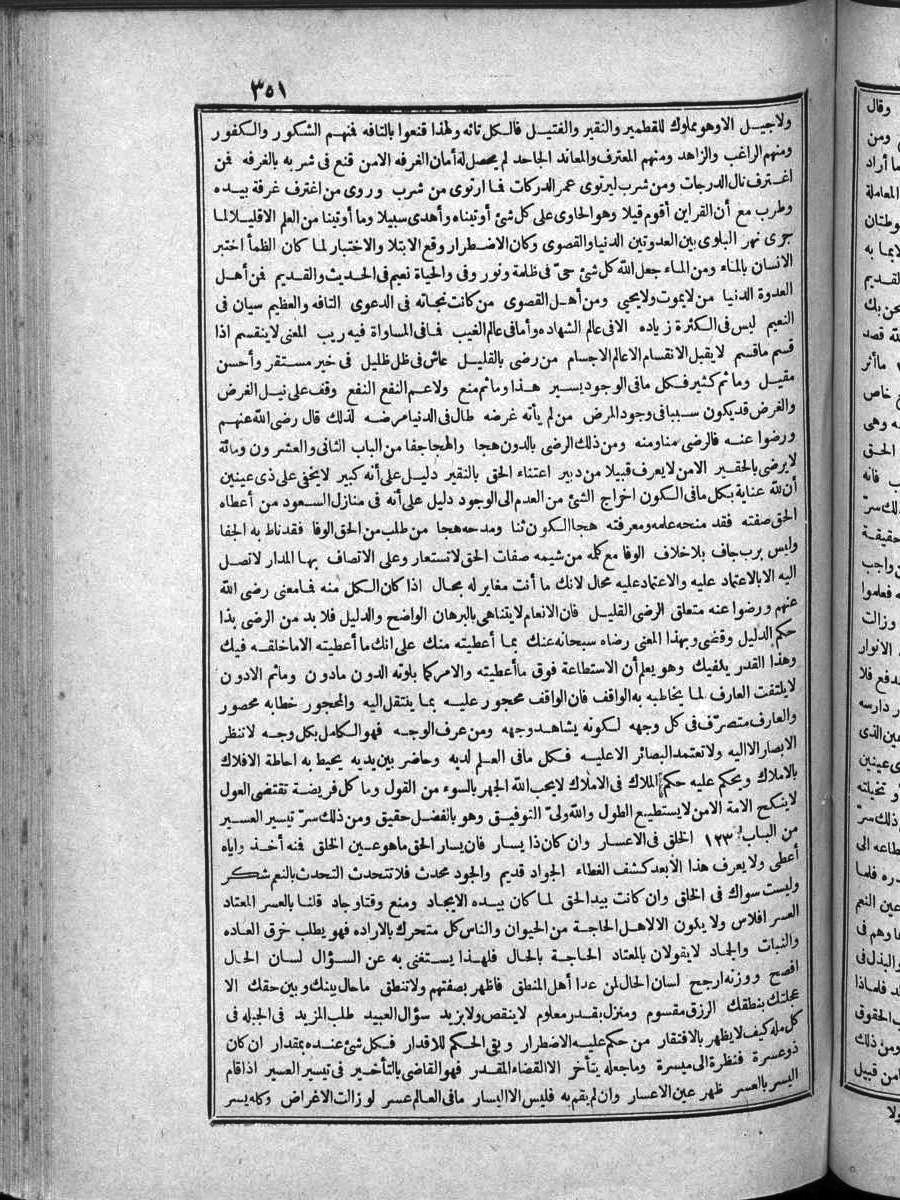 ٣٥١
ولا جيل الا وهو مملوك للقطمير والنقير والفتيل فالكل تائه ولهذا قنعوا بالتافه فمنهم الشكور والكفور
ومنهم الراغب والزاهد ومنهم المعترف والمعاند الجاحد لم يحصل له أمان الغرفه الا من قنع فى شربه بالغرفه فمن
اغترف نال الدرجات ومن شرب ليرتوى عمر الدركات فما ارتوى من شرب وروى من اغترف غرفة بيده
وطرب مع أن القرآن أقوم قيلا وهو الحاوى على كل شئ أوتيناه وأهدى سبيلا وما أوتينا من العلم الا قليلا لما
جرى نهر البلوى بين العدوتين الدنيا والقصوى وكان الاضطرار وقع الابتلا والاختبار لما كان الظمأ اختبر
الانسان بالماء ومن الماء جعل الله كل شئ حىّ فى ظلمة ونور وفى والحياة نعيم فى الحديث والقديم فمن أهل
العدوة الدنيا من لا يموت ولا يحيى ومن أهل القصوى من كانت نجاته فى الدعوى التافه والعظيم سيان فى
النعيم ليس فى الكثرة زياده الا فى عالم الشهاده وأما فى عالم الغيب فما فى المساواة فيه ريب المعنى لا ينقسم اذا
قسم ما قسم لا يقبل الانقسام الا عالم الاجسام من رضى بالقليل عاش فى ظل ظليل فى خير مستقر وأحسن
مقيل وما ثم كثير فكل ما فى الوجود يسير هذا وما ثم منع ولا عم النفع النفع وقف على نيل الغرض
والغرض قد يكون سببا فى وجود المرض من لم يأته غرضه طال فى الدنيا مرضه لذلك قال رضى الله عنهم
ورضوا عنه فالرضى منا ومنه ومن ذلك الرضى بالدون هجا والهجا جفا من الباب الثانى والعشرون ومائة
لا يرضى بالحقير الا من لا يعرف قبيلا من دبير اعتناء الحق بالنقير دليل على أنه كبير لا يخفى على ذى عينين
أن لله عناية بكل ما فى السكون اخراج الشئ من العدم الى الوجود دليل على أنه فى منازل السعود من أعطاه
الحق صفته فقد منحه علمه ومعرفته هجا الكون ثنا ومدحه هجا من طلب من الحق الوفا فقد ناط به الجفا
وليس برب جاف بلا خلاف الوفا مع كله من شيمه صفات الحق لا تستعار وعلى الاتصاف بها المدار لا تصل
اليه الا بالاعتماد عليه والاعتماد عليه محال لانك ما أنت مغاير له بحال اذا كان الكل منه فما معنى رضى الله
عنهم ورضوا عنه متعلق الرضى القليل فان الانعام لا يتناهى بالبرهان الواضح والدليل فلا بد من الرضى بذا
حكم الدليل وقضى وبهذا المعنى رضاه سبحانه عنك بما أعطيته منك على انك ما أعطيته الا ما خلقه فيك
وهذا القدر يكفيك وهو يعلم أن الاستطاعة فوق ما أعطيته والامر كما بلوته الدون ما دون وما ثم الا دون
لا يلتفت العارف لما يخاطبه به الواقف فان الواقف محجور عليه بما ينتقل اليه والمحجور خطابه محصور
والعارف متصرّف فى كل وجهه لكونه يشاهد وجهه ومن عرف الوجه فهو الكامل بكل وجه لا تنظر
الابصار الا اليه ولا تعتمد البصائر الا عليه فكل ما فى العلم لديه وحاضر بين يديه يحيط به احاطة الافلاك
بالاملاك ويحكم عليه حكم الملاك فى الاملاك لا يحب الله الجهر بالسوء من القول وما كل فريضة تقتضى العول
لا ينكح الامة الا من لا يستطيع الطول والله ولىّ التوفيق وهو بالفضل حقيق ومن ذلك سرّ تيسير العسير
من الباب ١٢٣ الخلق فى الاعسار وان كان ذا يسار فان يسار الحق ما هو عين الخلق فمنه أخذ واياه
أعطى ولا يعرف هذا الا بعد كشف الغطاء الجواد قديم والجود محدث فلا تتحدث التحدث بالنعم شكر
وليست سواك فى الخلق وان كانت بيد الحق لما كان بيده الايجاد ومنع وقتا وجاد قلنا بالعسر المعتاد
العسر افلاس ولا يكون الا لاهل الحاجة من الحيوان والناس كل متحرك بالاراده فهو يطلب خرق العاده
والنبات والجاد لا يقولان بالمعتاد الحاجة بالحال فلهذا يستغنى به عن السؤال لسان الحال
افصح ووزنه ارجح لسان الحال لمن عدا أهل المنطق فاظهر بصفتهم ولا تنطق ما حال بينك وبين حقك الا
عجلتك بنطقك الرزق مقسوم ومنزل بقدر معلوم لا ينقص ولا يزيد سؤال العبيد طلب المزيد فى الجبله فى
كل مله كيف لا يظهر بالافتقار من حكم عليه الاضطرار وبقى الحكم للاقدار فكل شئ عنده بمقدار ان كان
ذو عسرة فنظرة الى ميسرة وما جعله يتأخر الا القضاء المقدر فهو القاضى بالتأخير فى تيسير العسير اذا قام
اليسر بالعسر ظهر عين الاعسار وان لم يقم به فليس الا اليسار ما فى العالم عسر لو زالت الاغراض وكله يسر